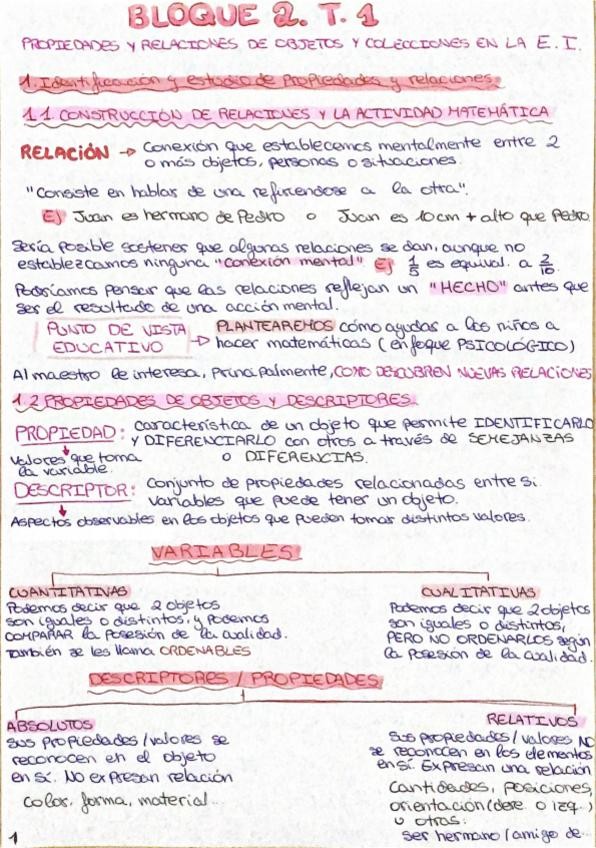 BLOQUE 2. T. 1
PROPIEDADES Y RELACIONES DE OBJETOS Y COLECCIONES EN LA E. I.
1. Identificación y estudio de propiedades y relaciones.
1.1. CONSTRUCCIÓN DE RELACIONES Y LA ACTIVIDAD MATEMÁTICA
RELACIÓN → Conexión que establecemos mentalmente entre 2
o más objetos, personas o situaciones.
"Consiste en hablar de una refiriendose a la otra".
Ej Juan es hermano de Pedro o Juan es 10cm + alto que Pedro.
Sería posible sostener que algunas relaciones se dan, aunque no
establezcamos ninguna "conexión mental" Ej 1/5 es equival. a 2/10.
Podríamos pensar que las relaciones reflejan un "HECHO" antes que
ser el resultado de una acción mental.
PUNTO DE VISTA EDUCATIVO → PLANTEAREMOS cómo ayudas a los niños a
hacer matemáticas (enfoque PSICOLÓGICO)
Al maestro le interesa, principalmente, COMO DESCUBREN NUEVAS RELACIONES
1.2 PROPIEDADES DE OBJETOS Y DESCRIPTORES.
PROPIEDAD: característica de un objeto que permite IDENTIFICARLO
Y DIFERENCIARLO con otros a través de SEMEJANZAS
o DIFERENCIAS.
valores que toma
la variable.
DESCRIPTOR: Conjunto de propiedades relacionadas entre si.
Variables que puede tener un objeto.
Aspectos observables en los objetos que pueden tomar distintos valores.
VARIABLES
CUANTITATIVAS
Podemos decir que 2 objetos
son iguales o distintos, y podemos
COMPARAR la posesión de la cualidad.
También se les llama ORDENABLES
CUALITATIVAS
Podemos decir que 2 objetos
son iguales o distintos,
PERO NO ORDENARLOS según
la posesión de la cualidad.
DESCRIPTORES / PROPIEDADES
ABSOLUTOS
Sus propiedades/valores se
reconocen en el objeto
en sí. No expresan relación
color, forma, material...
RELATIVOS
Sus propiedades/valores NO
se reconocen en los elementos
en sí. Expresan una relación
Cantidades, posiciones,
orientación (dere. o izq...)
u otras:
ser hermano/amigo de...
1